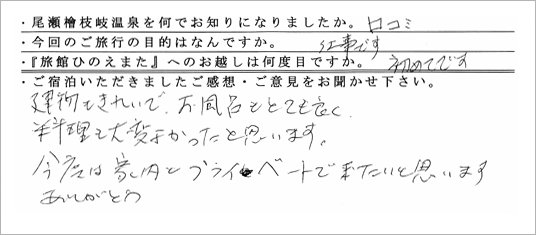 ・尾瀬檜枝岐温泉を何でお知りになりましたか。口コミ
・今回のご旅行の目的はなんですか。仕事です
・『旅館ひのえまた』へのお越しは何度目ですか。初めてです
・ご宿泊いただきましたご感想・ご意見をお聞かせ下さい。
建物もきれいで、お風呂もとても良く、
料理も大変よかったと思います。
今度は家内とプライベートで来たいと思います
ありがとう